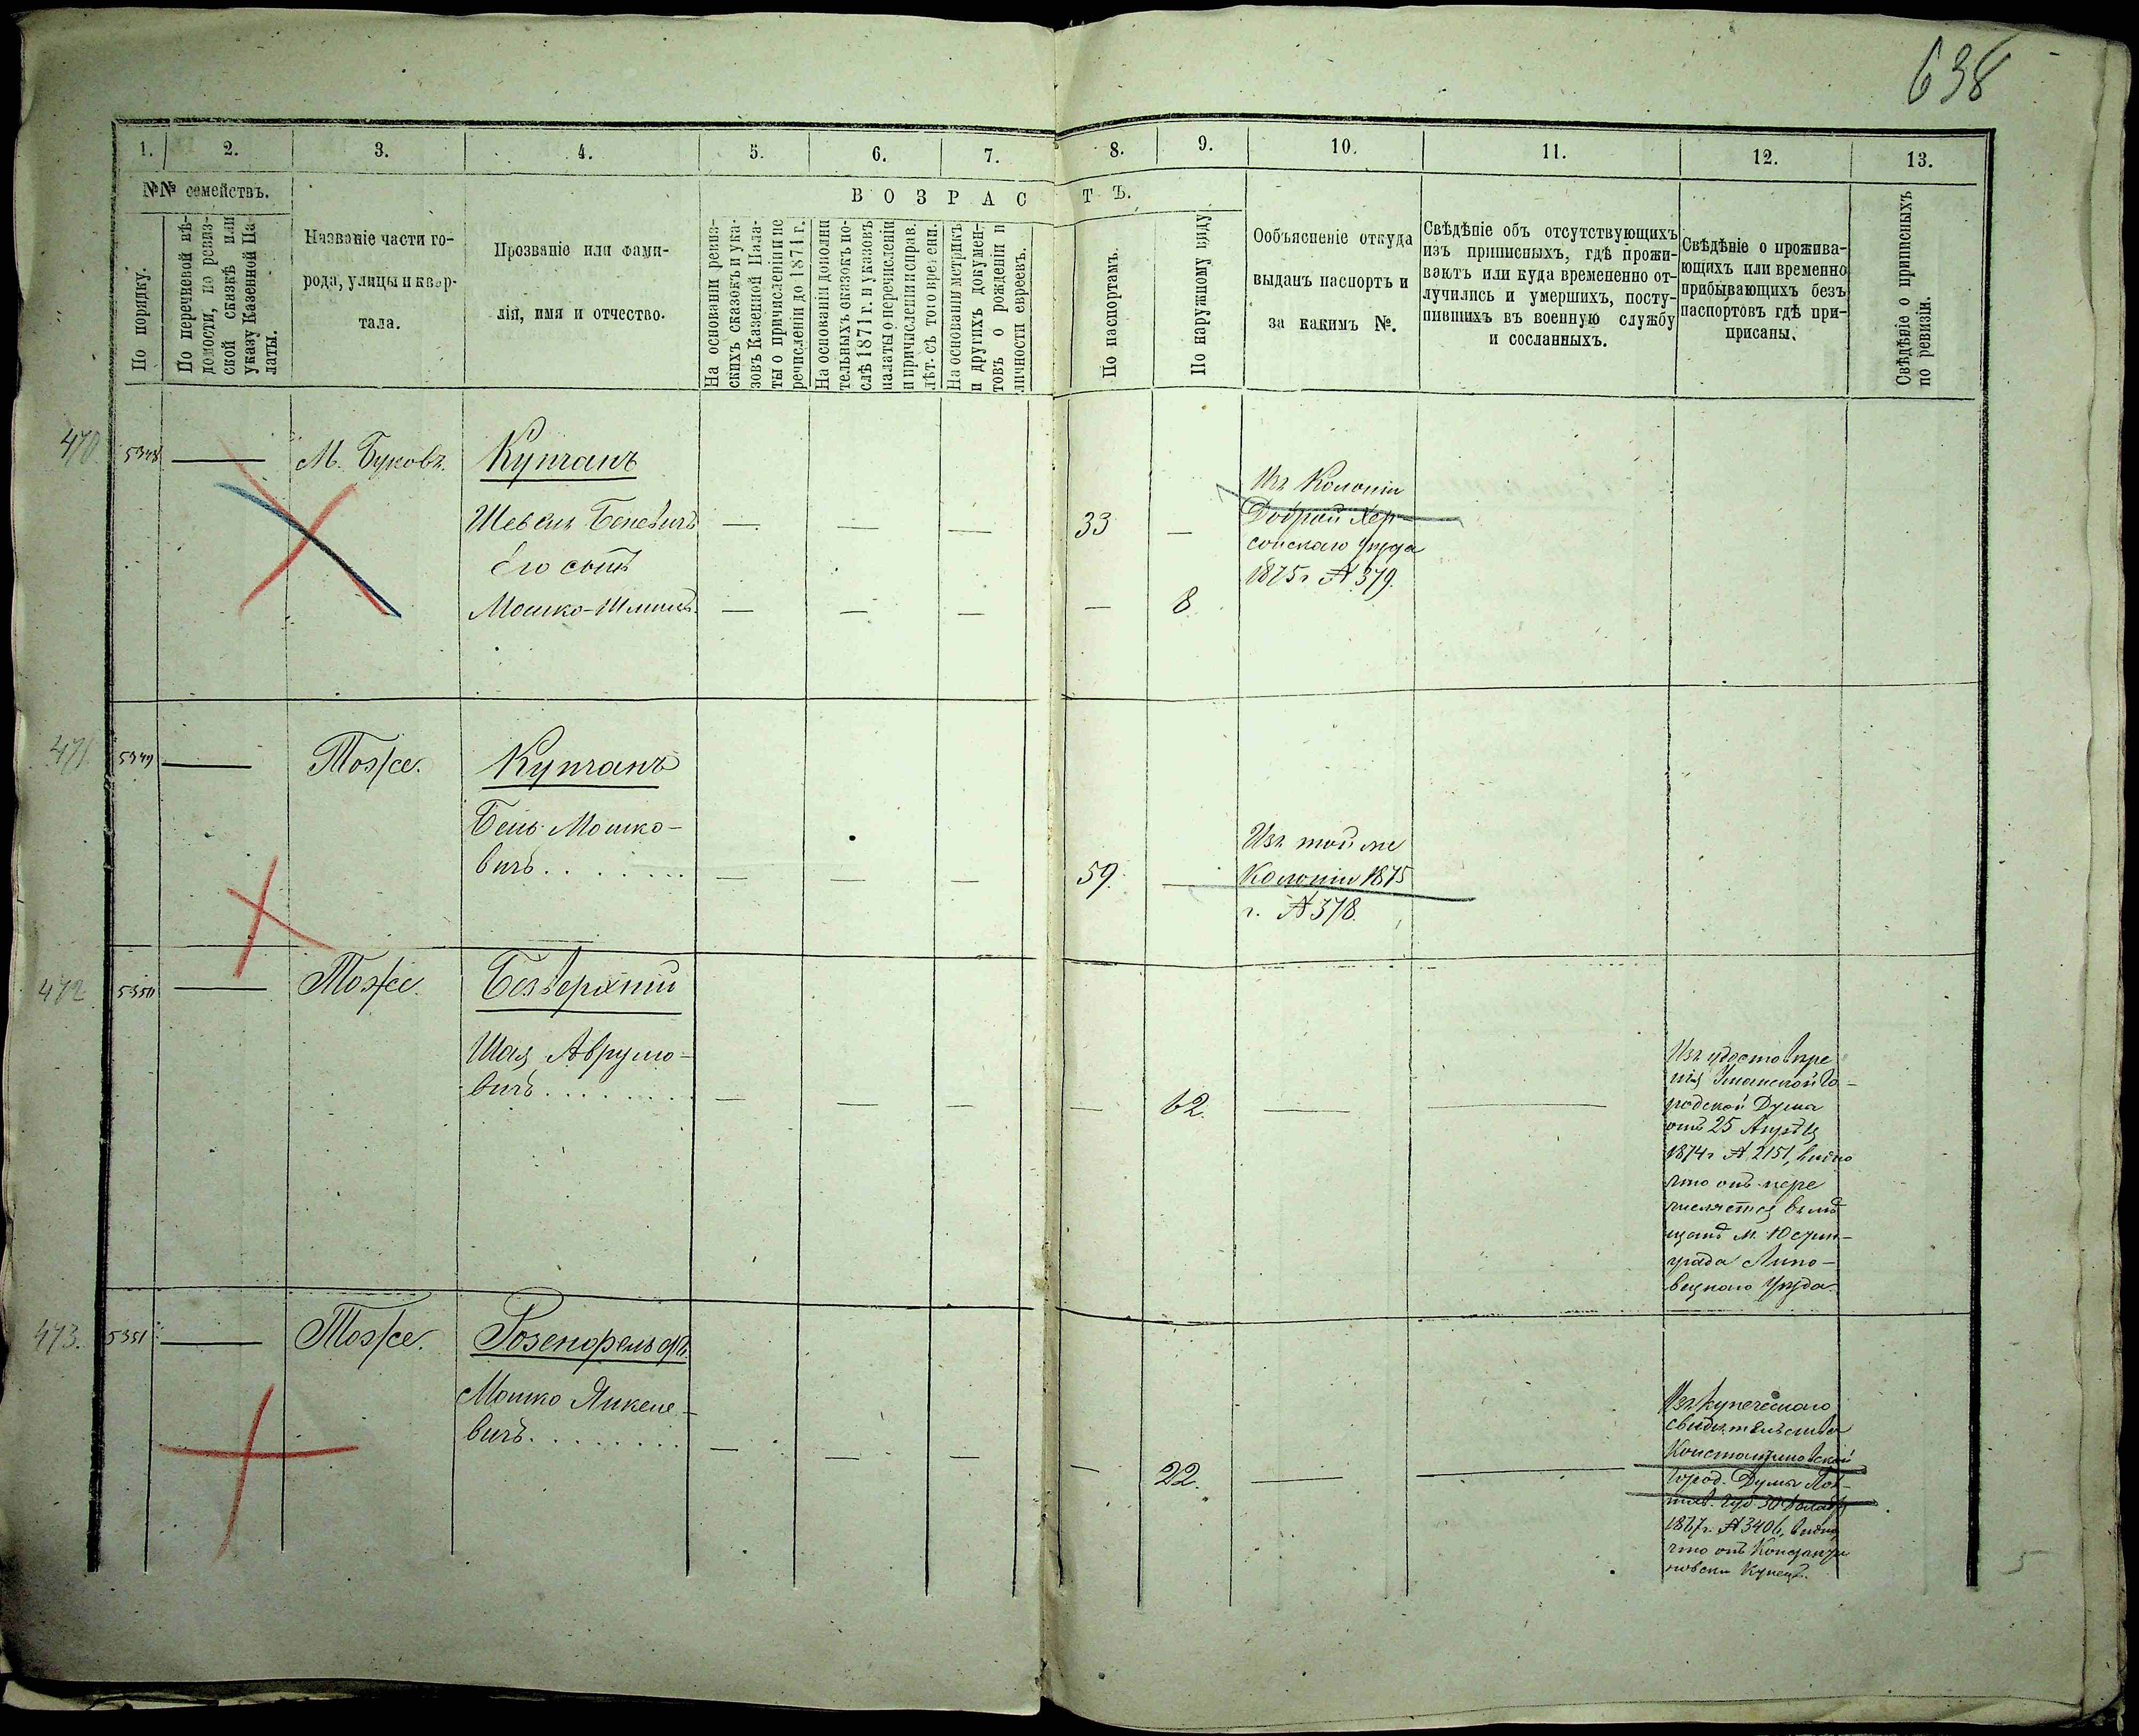 638
1.
2.
3.
4.
5.
6.
7.
8.
9.
10.
11.
12.
13.
№№ семействъ.
По порядку.
По перечневой вѣ-
домости, по ревиз-
ской сказкѣ или
указу Казенной Па-
латы.
Названіе части го-
рода, улицы и квар-
тала.
Прозваніе или фами-
лія, имя и отчество.
ВОЗРАСТЪ.
На основаніи ревиз-
скихъ сказокъ и ука-
зовъ Казенной Пала-
ты о причисленіи и пе
речисленіи до 1871 г.
На основаніи дополни
тельныхъ сказокъ по-
слѣ 1871 г. и указовъ
палаты о перечисленіи
и причисленіи справ.
лѣт. съ того времени.
На основаніи метрикъ
и другихъ докумен-
товъ о рожденіи и
личности евреевъ.
По паспортамъ.
По наружному виду
Ообъясненіе откуда
выданъ паспортъ и
за какимъ №.
Свѣдѣніе объ отсутствующихъ
изъ приписныхъ, гдѣ прожи-
ваютъ или куда времененно от-
лучились и умершихъ, посту-
пившихъ въ военную службу
и сосланныхъ.
Свѣдѣніе о прожива-
ющихъ или временно
прибывающихъ безъ
паспортовъ гдѣ при-
приcаны.
Свѣдѣніе о приписныхъ
по ревизіи.
470.
5348
—
М. Буковъ.
Купчанъ
Шевель Беневичъ
— — —
33
—
Изъ Колоніи
Доброй Хер-
сонскаго уѣзда
1875 г. № 379.
Его сынъ
Мошко-Шлима
— — — —
8.
471
5349
—
Тоже.
Купчанъ
Бень Мошко-
вичъ . . . . . . .
— — —
59.
—
Изъ той же
Колоніи 1875
г. № 378.
472
5350
—
Тоже.
Безверхній
Шая Аврумо-
вичъ . . . . . . . .
— — — —
62.
— —
Изъ удостовѣре
нія Уманской Го-
родской Думы
отъ 25 Августа
1874 г. № 2151, видно
что онъ пере
числяется въ мѣ
щане м. Юстин-
града Липо-
вецкаго Уѣзда.
473.
5351
—
Тоже.
Розенфельдъ.
Мошко Янкеле-
вичъ . . . . . . . .
— — — —
22.
— —
Изъ купеческаго
свидѣтельства
Константиновской
Город. Думы
1867 г. № 3406, видно
что онъ Константи
новскій Купецъ.
5